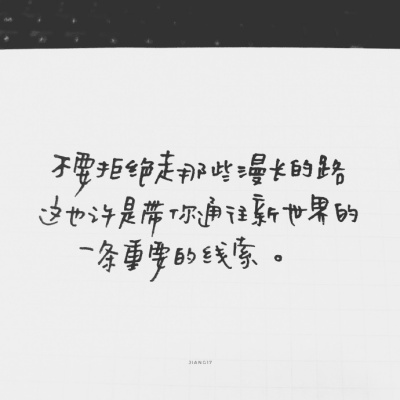 不要拒绝走那些漫长的路
这也许是带你通往新世界的
一条重要的线索。
JIANGIT